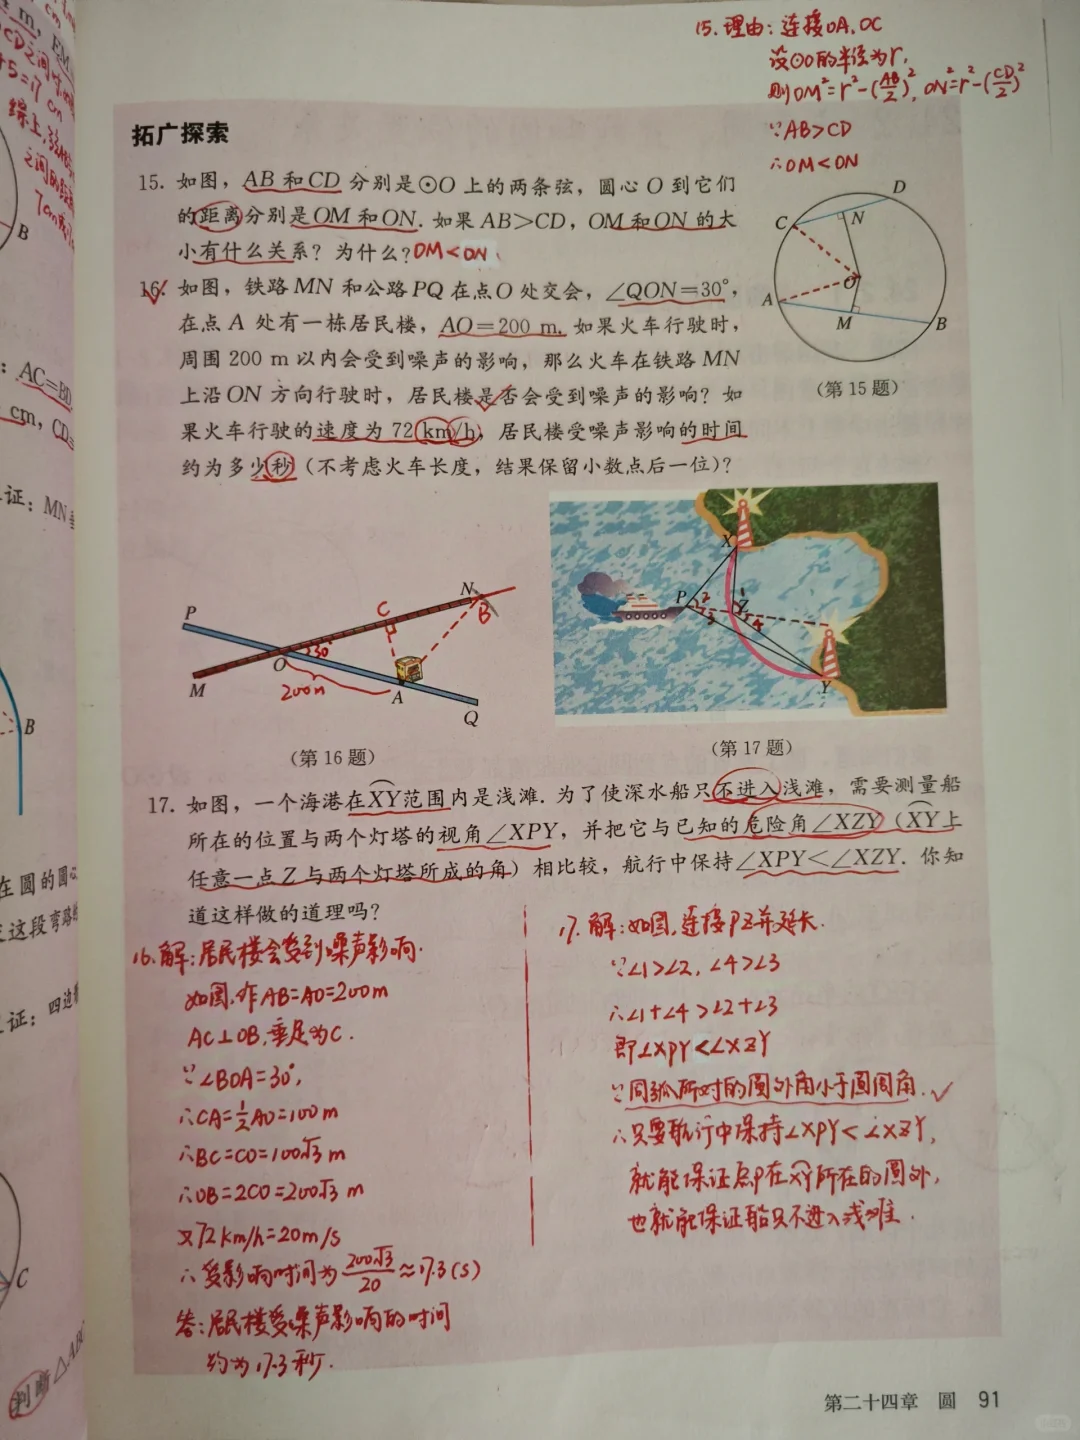 15. 理由：连接OA，OC
设⊙O的半径为r，
则OM²=r²-(AB/2)²，ON²=r²-(CD/2)²
∵AB>CD
∴OM<ON
拓广探索
15. 如图，AB和CD分别是⊙O上的两条弦，圆心O到它们
的距离分别是OM和ON. 如果AB>CD，OM和ON的大
小有什么关系？为什么？OM<ON.
16. 如图，铁路MN和公路PQ在点O处交会，∠QON=30°，
在点A处有一栋居民楼，AO=200 m. 如果火车行驶时，
周围200 m以内会受到噪声的影响，那么火车在铁路MN
上沿ON方向行驶时，居民楼是否会受到噪声的影响？如
果火车行驶的速度为72 km/h，居民楼受噪声影响的时间
约为多少秒（不考虑火车长度，结果保留小数点后一位）？
C
D
N
O
A
M
B
（第15题）
P
N
C
B
30°
O
M
200m
A
Q
（第16题）
X
P
2
1
Z
3
4
Y
（第17题）
17. 如图，一个海港在XY范围内是浅滩. 为了使深水船只不进入浅滩，需要测量船
所在的位置与两个灯塔的视角∠XPY，并把它与已知的危险角∠XZY（XY上
任意一点Z与两个灯塔所成的角）相比较，航行中保持∠XPY<∠XZY. 你知
道这样做的道理吗？
16. 解：居民楼会受到噪声影响.
如图，作AB=AO=200m
AC⊥OB，垂足为C.
∵∠BOA=30°，
∴CA=½AO=100m
∴BC=CO=100√3 m
∴OB=2CO=200√3 m
又72km/h=20m/s
∴受影响时间为200√3/20≈17.3(s)
答：居民楼受噪声影响的时间
约为17.3秒.
17. 解：如图，连接PZ并延长.
∵∠1>∠2，∠4>∠3
∴∠1+∠4>∠2+∠3
即∠XPY<∠XZY
∵同弧所对的圆外角小于圆周角.
∴只要航行中保持∠XPY<∠XZY，
就能保证点P在XY所在的圆外，
也就能保证船只不进入浅滩.
第二十四章 圆 91
m，EM
cm
CD之间
+5=17 cm
综上，弦AB
之间的距离
7cm或
B
：AC=BD
cm，CD=
证：MN
B
在圆的圆心
这段弯路
证：四边
C
判断△ABC